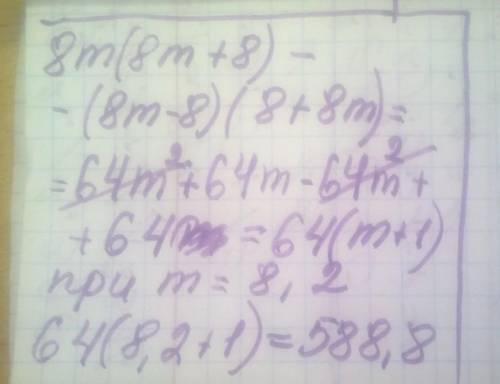 8m(8m+8) -
- (8m-8)(8+8m)=
= 64m²+64m-64m²+
+64 = 64(m+1)
при m = 8,2
64(8,2+1)=588,8